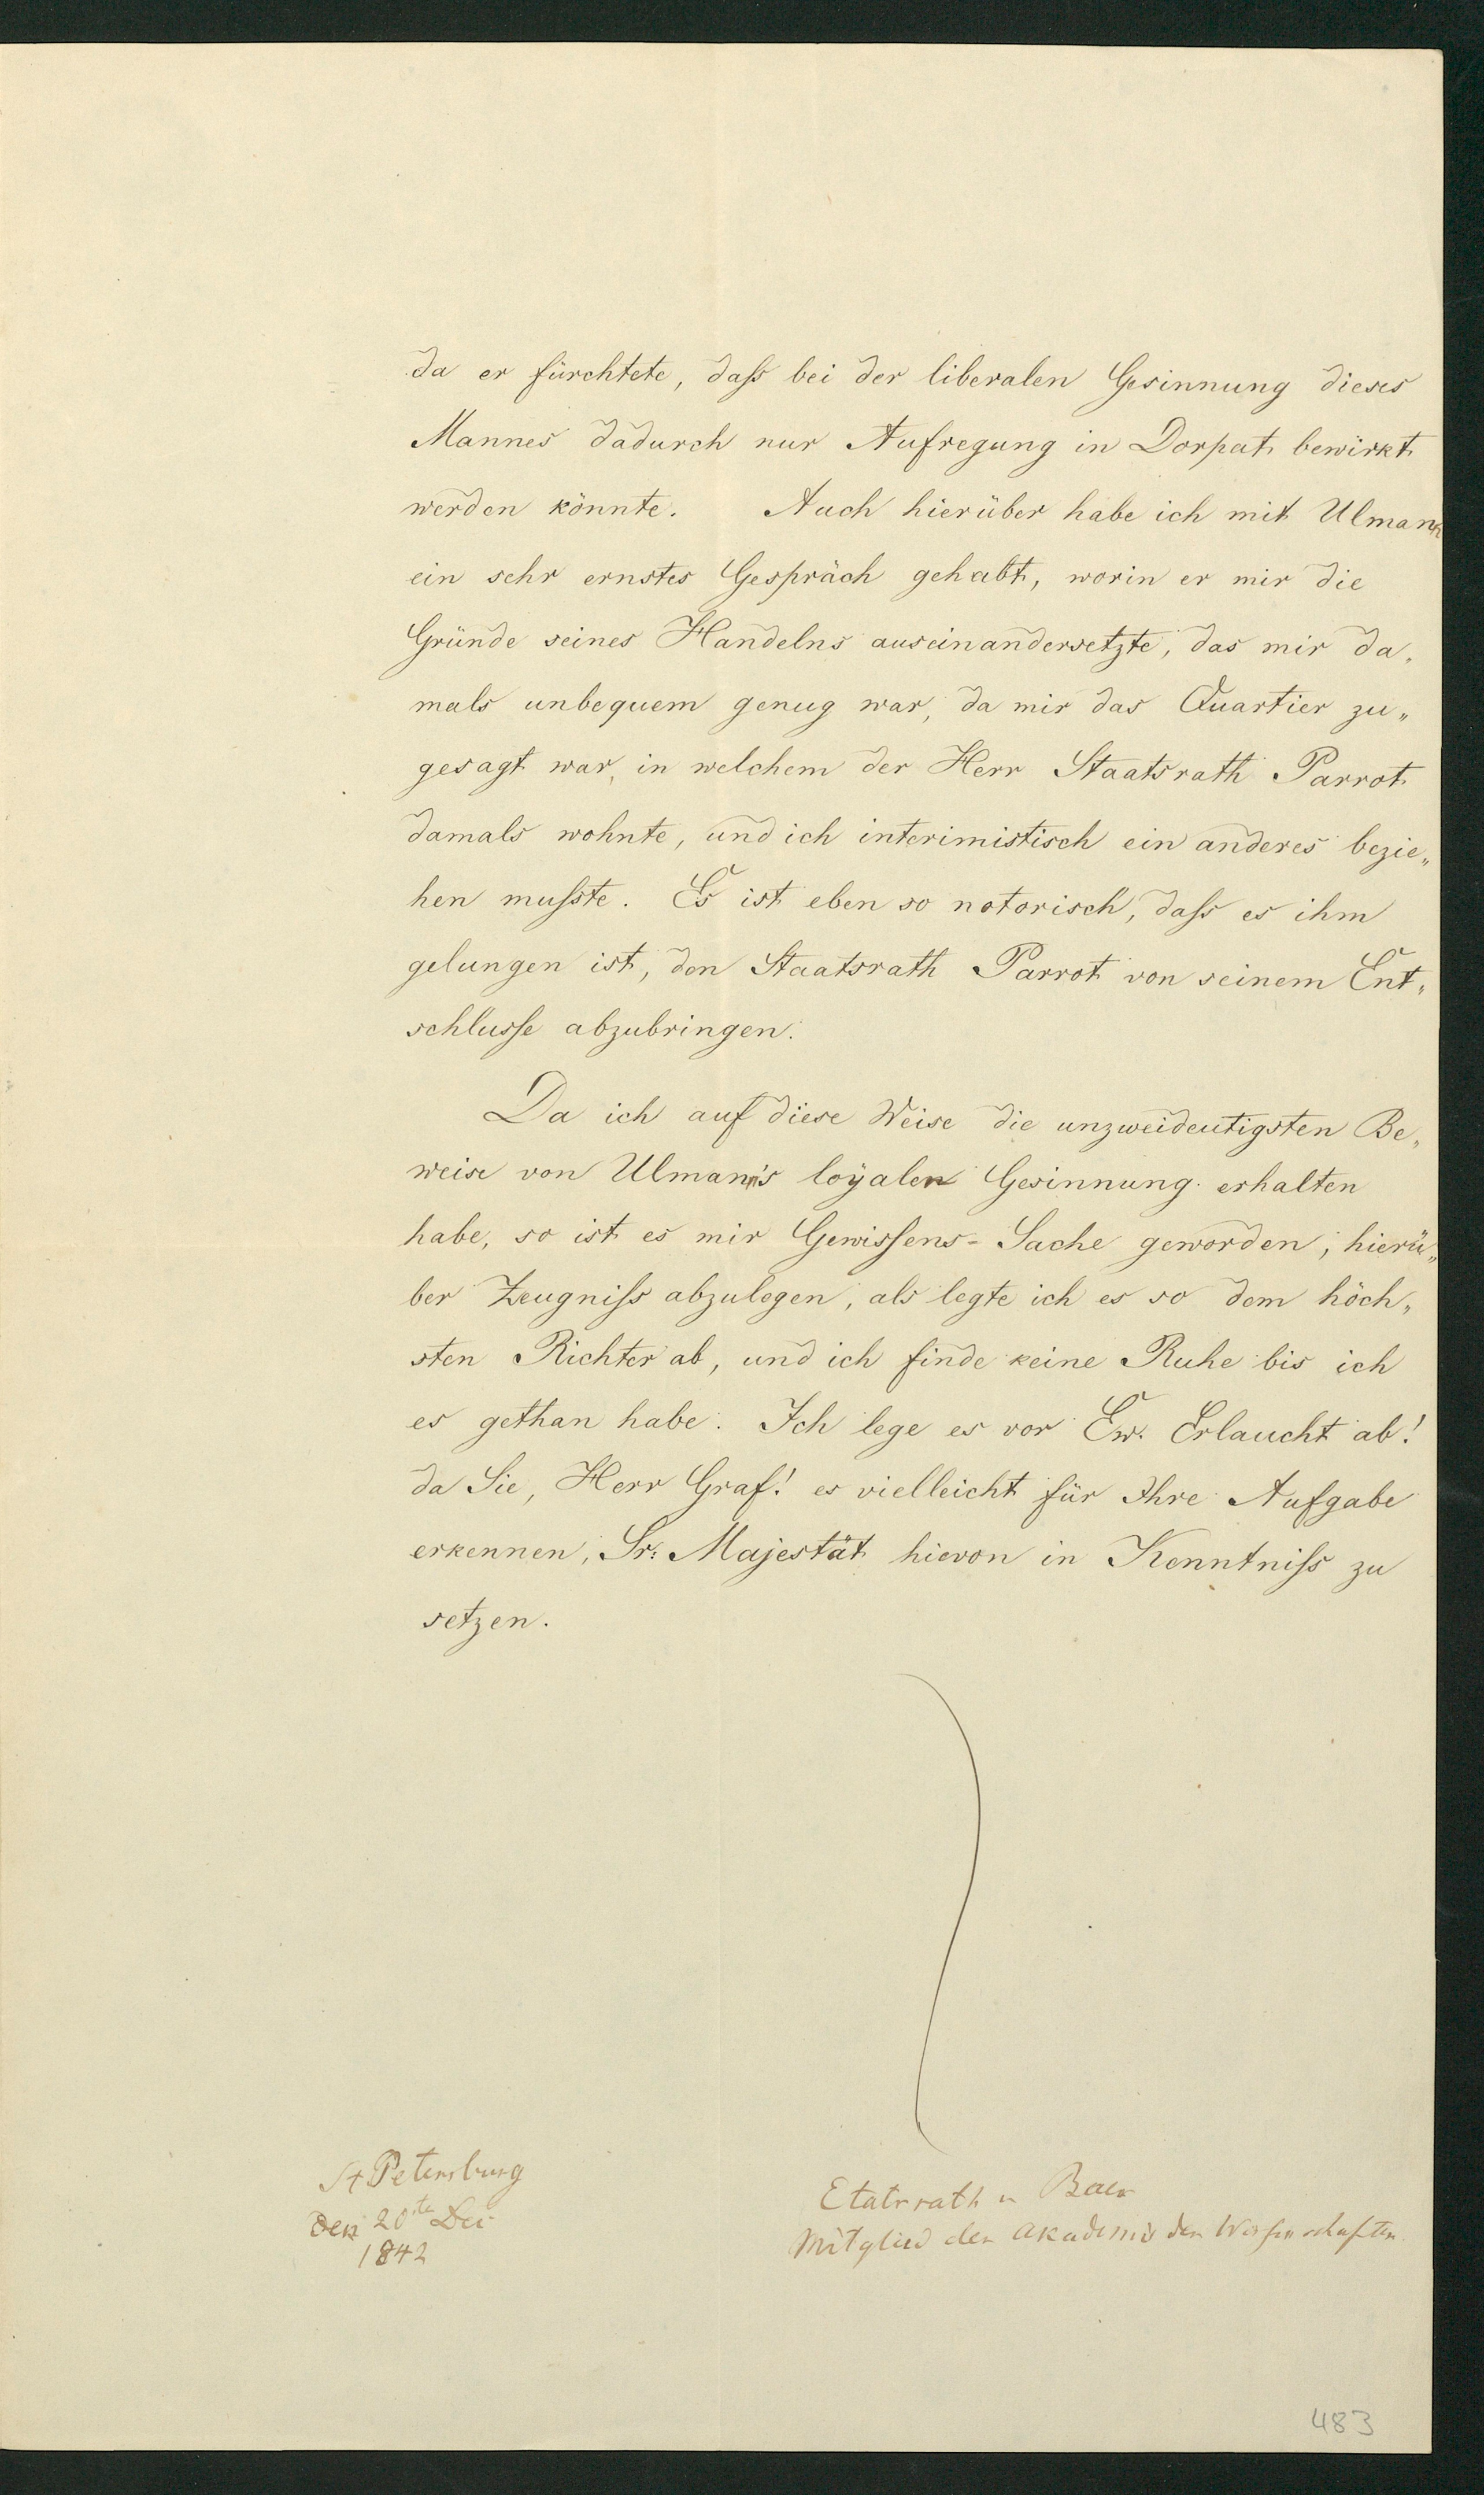 da er fürchtete, daſs bei der liberalen Gesinnung dieses
Mannes dadurch nur Aufregung in Dorpat bewirkt
werden könnte. Auch hierüber habe ich mit Ulmann
ein sehr ernstes Gespräch gehabt, worin er mir die
Gründe seines Handelns auseinandersetzte, das mir da„
mals unbequem genug war, da mir das Quartier zu„
gesagt war, in welchem der Herr Staatsrath Parrot
damals wohnte, und ich interimistisch ein anderes bezie„
hen muſste. Es ist eben so notorisch, daſs es ihm
gelungen ist, den Staatsrath Parrot von seinem Ent„
schluſse abzubringen.
Da ich auf diese Weise die unzweideutigsten Be„
weise von Ulmann's loyalen Gesinnung erhalten
habe, so ist es mir Gewiſsens-Sache geworden, hierü„
ber Zeugniſs abzulegen, als legte ich es so dem höch„
sten Richter ab, und ich finde keine Ruhe bis ich
es gethan habe. Ich lege es vor Ew. Erlaucht ab!
da Sie, Herr Graf! es vielleicht für Ihre Aufgabe
erkennen, Sr: Majestät hievon in Kenntniſs zu
setzen.
St Petersburg
den 20te Dec
1842
Etatsrath v Baer
Mitglied der Akademie der Wissenschaften.
483